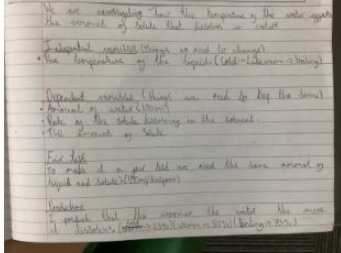 We are investigating how the temperature of the water affects
the amount of solute that dissolves in water
Independent variables (things we need to change)
• The temperature of the liquid. (cold → Lukewarm → boiling)
Dependent variables (things we need to keep the same)
• Amount of water (100ml)
• Rate of the solute dissolving in the solvent.
• The amount of solute
Fair test
To make it a fair test we need the same amount of
liquid and solute
Prediction
I predict that the warmer the water the more
it dissolves 25%) (warm → 50%) (boiling → 85%)